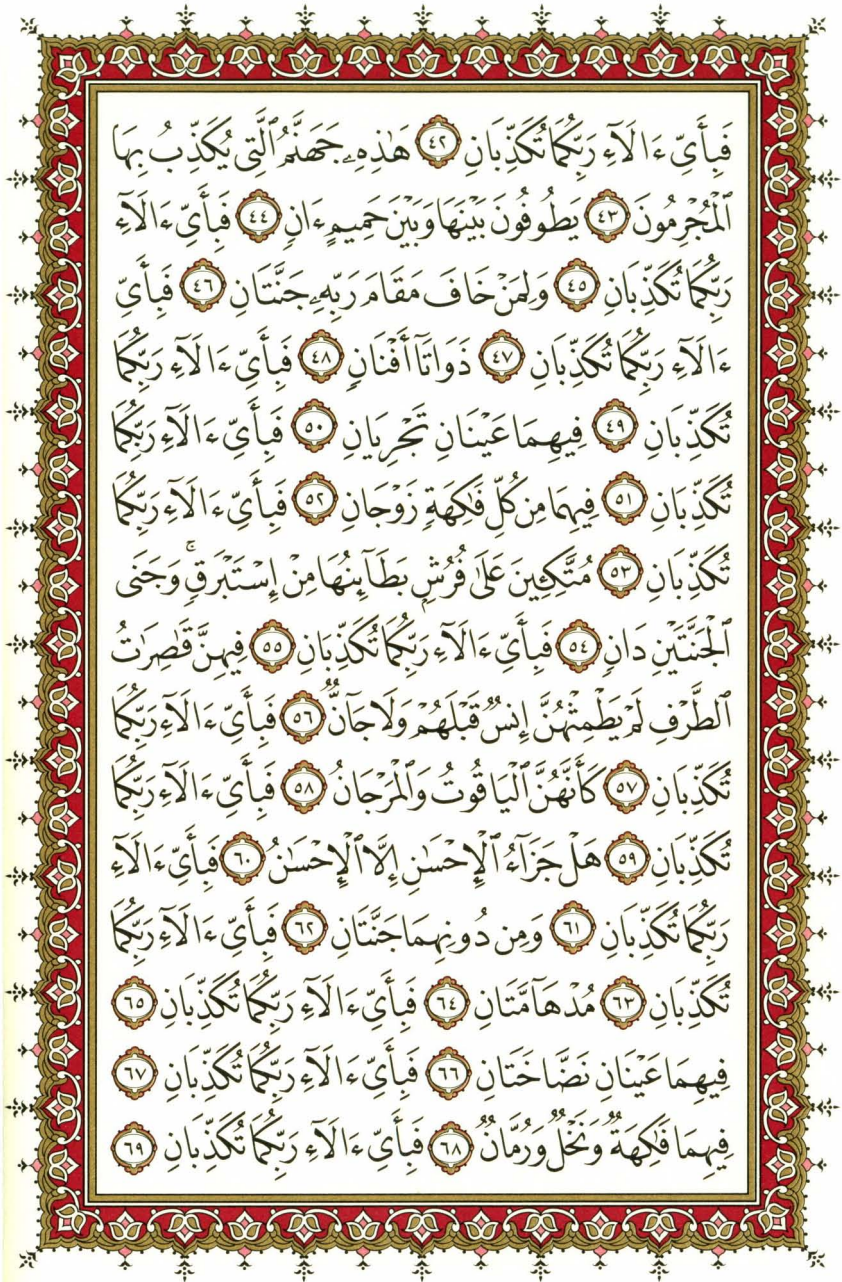 فَبِأَىِّ ءَالَآءِ رَبِّكُمَا تُكَذِّبَانِ ٤٢ هَـٰذِهِۦ جَهَنَّمُ ٱلَّتِى يُكَذِّبُ بِهَا
ٱلْمُجْرِمُونَ ٤٣ يَطُوفُونَ بَيْنَهَا وَبَيْنَ حَمِيمٍ ءَانٍ ٤٤ فَبِأَىِّ ءَالَآءِ
رَبِّكُمَا تُكَذِّبَانِ ٤٥ وَلِمَنْ خَافَ مَقَامَ رَبِّهِۦ جَنَّتَانِ ٤٦ فَبِأَىِّ
ءَالَآءِ رَبِّكُمَا تُكَذِّبَانِ ٤٧ ذَوَاتَآ أَفْنَانٍ ٤٨ فَبِأَىِّ ءَالَآءِ رَبِّكُمَا
تُكَذِّبَانِ ٤٩ فِيهِمَا عَيْنَانِ تَجْرِيَانِ ٥٠ فَبِأَىِّ ءَالَآءِ رَبِّكُمَا
تُكَذِّبَانِ ٥١ فِيهِمَا مِن كُلِّ فَـٰكِهَةٍ زَوْجَانِ ٥٢ فَبِأَىِّ ءَالَآءِ رَبِّكُمَا
تُكَذِّبَانِ ٥٣ مُتَّكِـِٔينَ عَلَىٰ فُرُشٍۭ بَطَآئِنُهَا مِنْ إِسْتَبْرَقٍ ۚ وَجَنَى
ٱلْجَنَّتَيْنِ دَانٍ ٥٤ فَبِأَىِّ ءَالَآءِ رَبِّكُمَا تُكَذِّبَانِ ٥٥ فِيهِنَّ قَـٰصِرَٰتُ
ٱلطَّرْفِ لَمْ يَطْمِثْهُنَّ إِنسٌ قَبْلَهُمْ وَلَا جَآنٌّ ٥٦ فَبِأَىِّ ءَالَآءِ رَبِّكُمَا
تُكَذِّبَانِ ٥٧ كَأَنَّهُنَّ ٱلْيَاقُوتُ وَٱلْمَرْجَانُ ٥٨ فَبِأَىِّ ءَالَآءِ رَبِّكُمَا
تُكَذِّبَانِ ٥٩ هَلْ جَزَآءُ ٱلْإِحْسَـٰنِ إِلَّا ٱلْإِحْسَـٰنُ ٦٠ فَبِأَىِّ ءَالَآءِ
رَبِّكُمَا تُكَذِّبَانِ ٦١ وَمِن دُونِهِمَا جَنَّتَانِ ٦٢ فَبِأَىِّ ءَالَآءِ رَبِّكُمَا
تُكَذِّبَانِ ٦٣ مُدْهَآمَّتَانِ ٦٤ فَبِأَىِّ ءَالَآءِ رَبِّكُمَا تُكَذِّبَانِ ٦٥
فِيهِمَا عَيْنَانِ نَضَّاخَتَانِ ٦٦ فَبِأَىِّ ءَالَآءِ رَبِّكُمَا تُكَذِّبَانِ ٦٧
فِيهِمَا فَـٰكِهَةٌ وَنَخْلٌ وَرُمَّانٌ ٦٨ فَبِأَىِّ ءَالَآءِ رَبِّكُمَا تُكَذِّبَانِ ٦٩